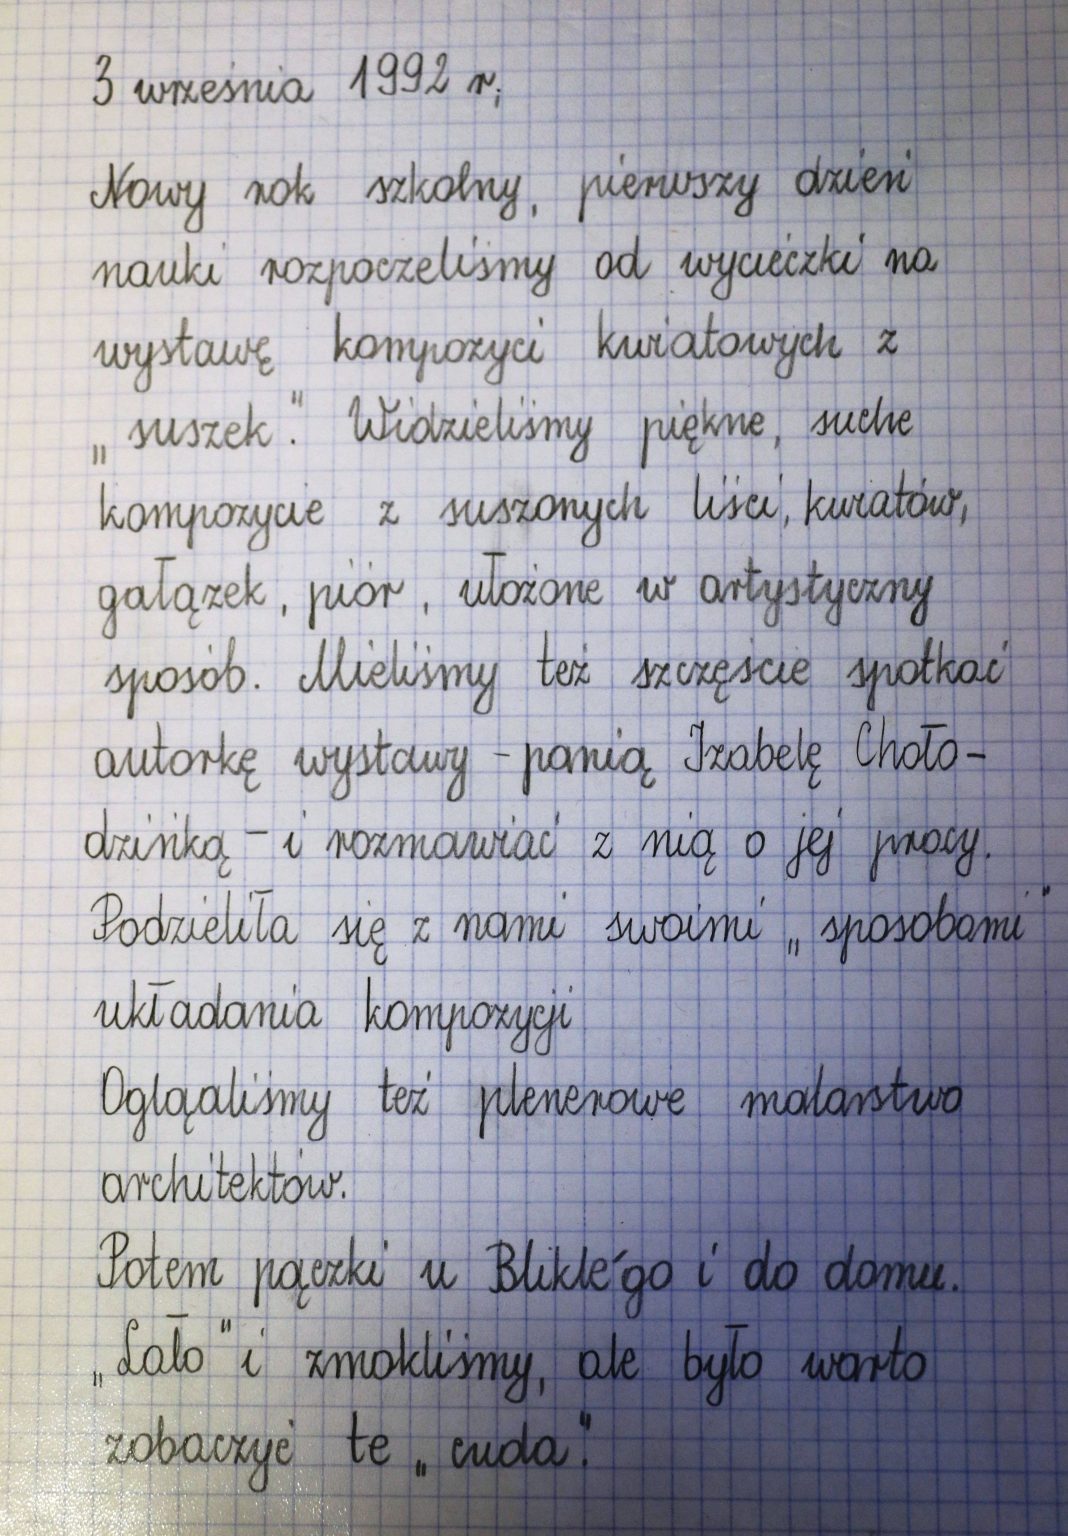 3 września 1992 r.
Nowy rok szkolny, pierwszy dzień
nauki rozpoczeliśmy od wycieczki na
wystawę kompozyci kwiatowych z
„suszek". Widzieliśmy piękne, suche
kompozycie z suszonych liści, kwiatów,
gałązek, piór, ułożone w artystyczny
sposób. Mieliśmy też szczęście spotkać
autorkę wystawy - panią Izabelę Choło-
dzińką - i rozmawiać z nią o jej pracy.
Podzieliła się z nami swoimi „sposobami"
układania kompozycji
Oglądaliśmy też plenerowe malarstwo
architektów.
Potem pączki u Blikle´go i do domu.
„Lało" i zmokliśmy, ale było warto
zobaczyć te „cuda".